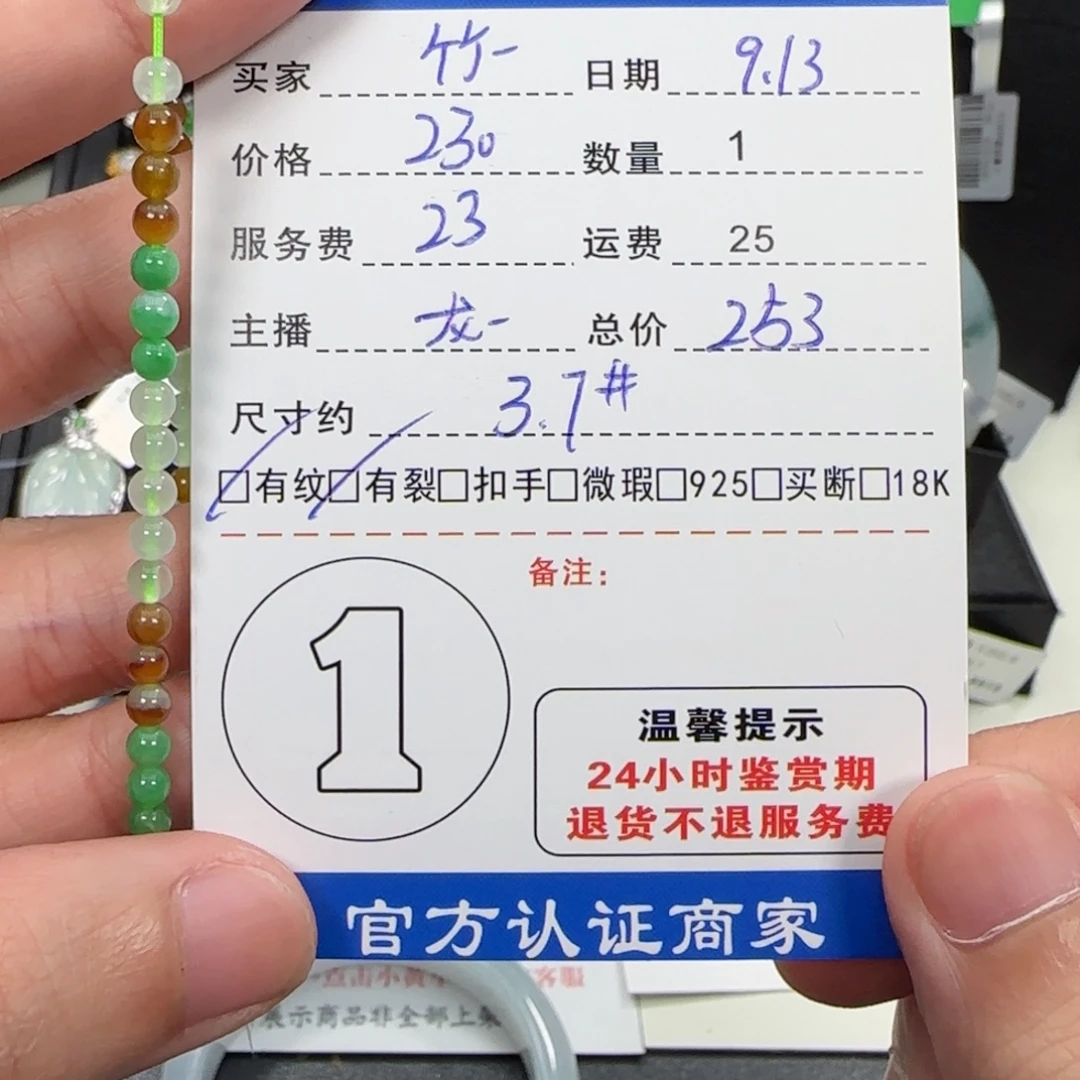 买家 竹一 日期 9.13
价格 230 数量 1
服务费 23 运费 25
主播 龙一 总价 253
尺寸约 3.7#
□有纹□有裂□扣手□微瑕□925□买断□18K
备注：
1
温馨提示
24小时鉴赏期
退货不退服务费
官方认证商家
展示商品非全部上架